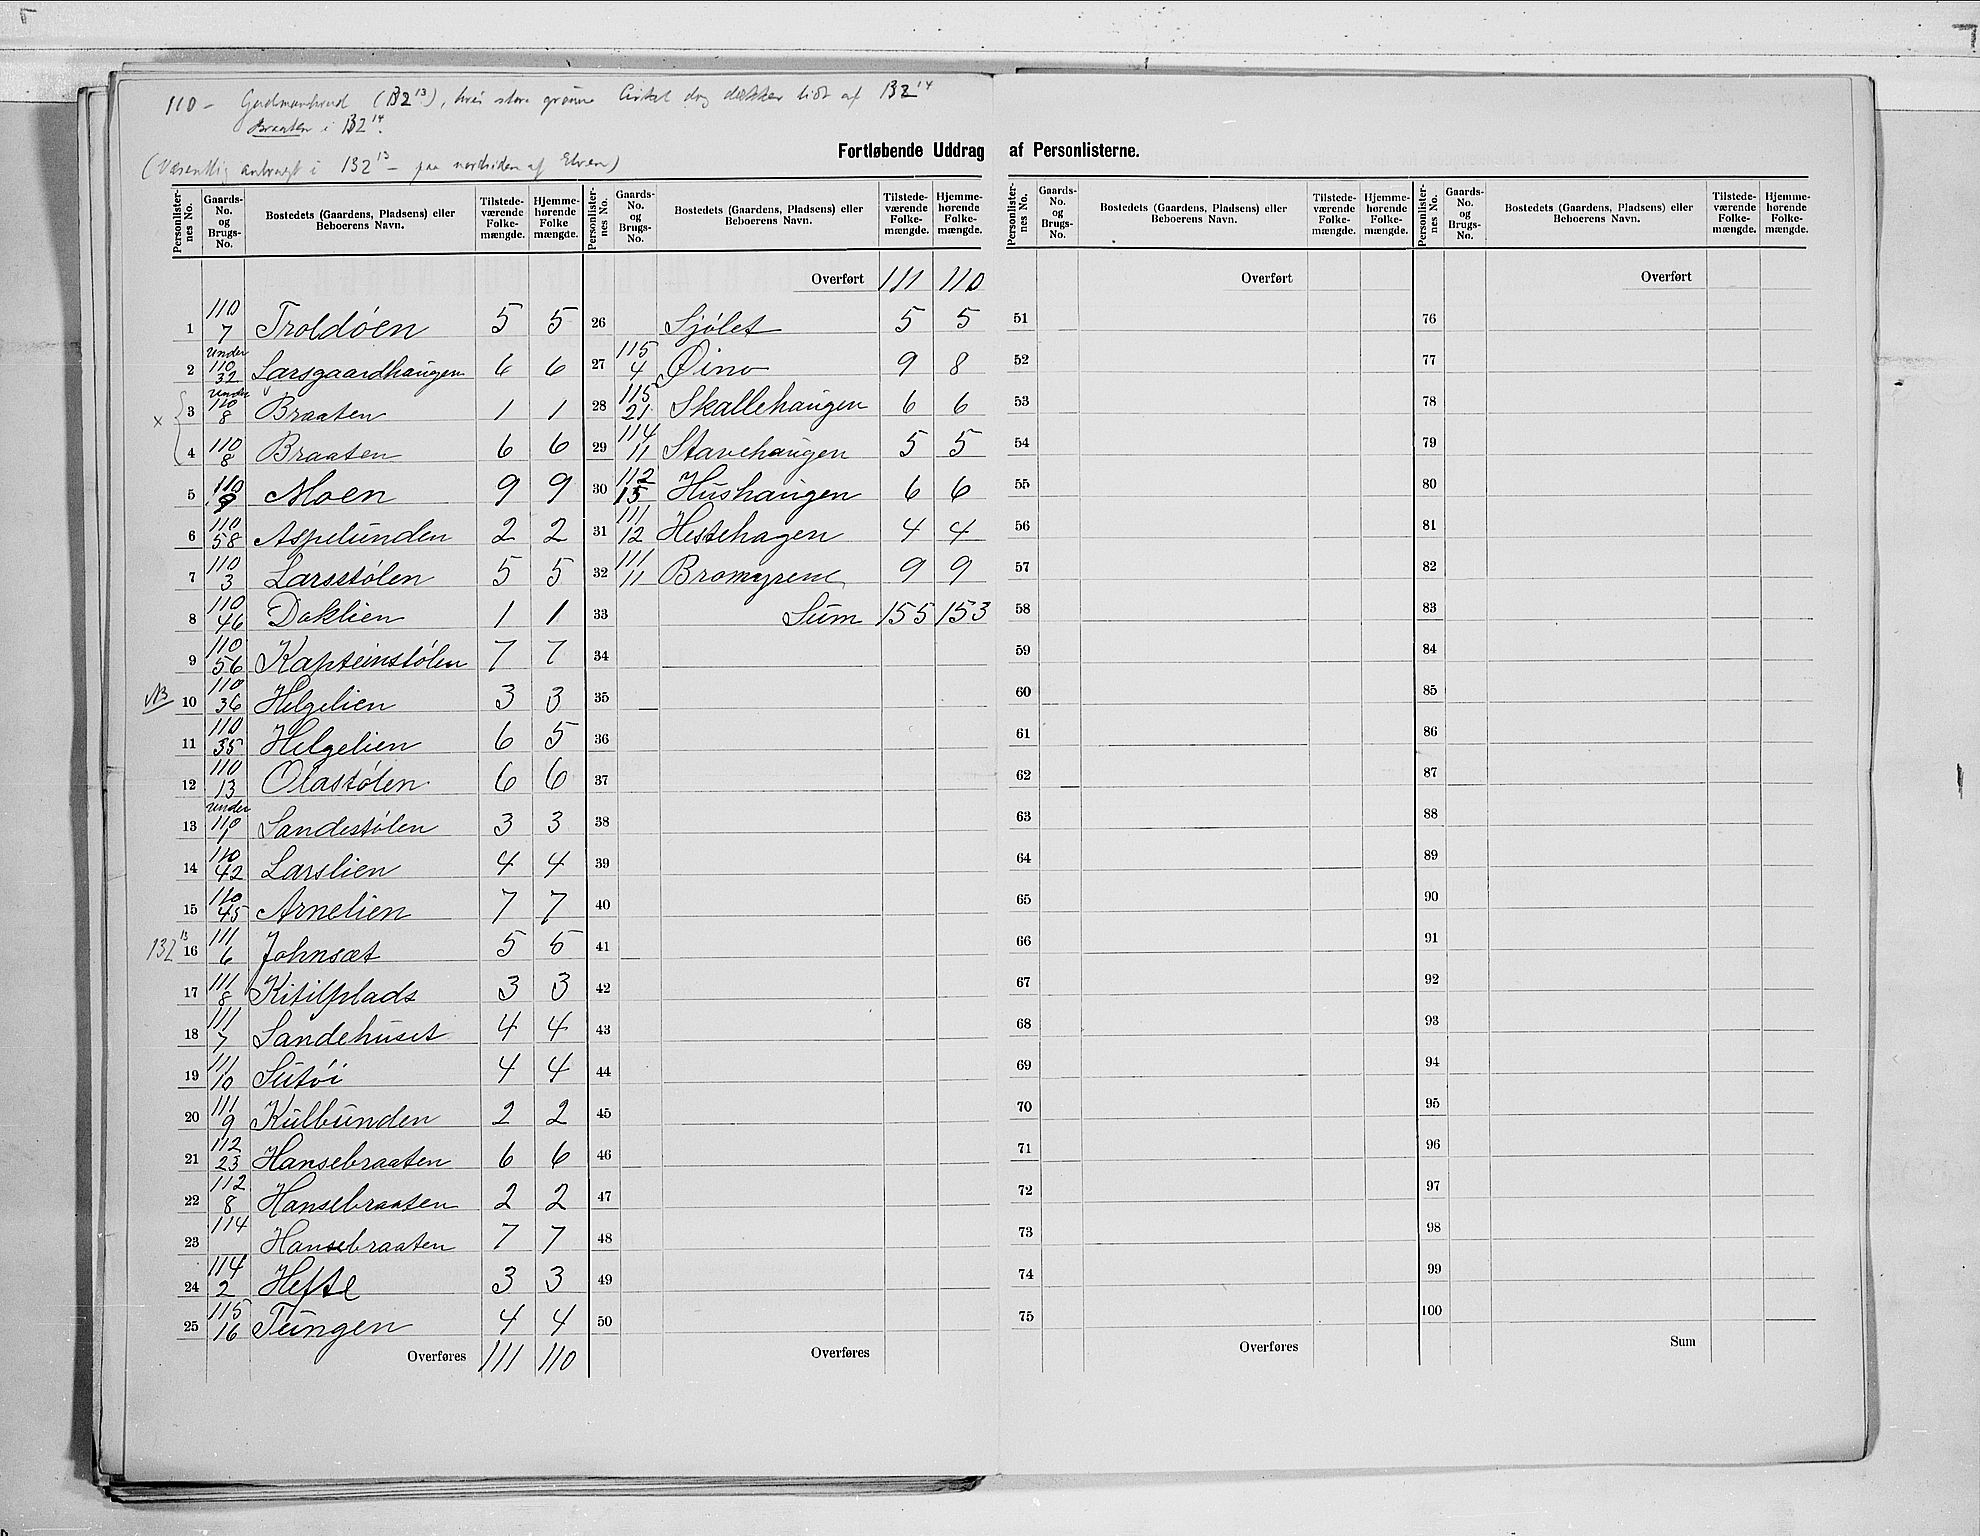 110 – Gudmundsrud (B2¹³), hvis store grønne Cirkel dog dækker lidt af B2¹⁴
Braaten i B2¹⁴.
(Væsentlig anbragt i B2¹³ – paa nordsiden af Elven)
Fortløbende Uddrag af Personlisterne.
Personlister-nes No. | Gaards-No. og Brugs-No. | Bostedets (Gaardens, Pladsens) eller Beboerens Navn. | Tilstede-værende Folke-mængde. | Hjemme-hørende Folke mængde.
1 | 110 7 | Troldøen | 5 | 5
2 | under 110 32 | Larsgaardhaugen | 6 | 6
x 3 | under 110 8 | Braaten | 1 | 1
4 | 110 8 | Braaten | 6 | 6
5 | 110 9 | Moen | 9 | 9
6 | 110 58 | Aspelunden | 2 | 2
7 | 110 3 | Larsstølen | 5 | 5
8 | 110 46 | Doklien | 1 | 1
9 | 110 56 | Kapteinstølen | 7 | 7
NB 10 | 110 36 | Helgelien | 3 | 3
11 | 110 35 | Helgelien | 6 | 5
12 | 110 13 | Olastølen | 6 | 6
13 | under 110 1 | Sandestølen | 3 | 3
14 | 110 42 | Larslien | 4 | 4
15 | 110 45 | Arnelien | 7 | 7
B2¹³ 16 | 111 6 | Johnsæt | 5 | 5
17 | 111 8 | Kitilplads | 3 | 3
18 | 111 7 | Sandehuset | 4 | 4
19 | 111 10 | Sutøi | 4 | 4
20 | 111 9 | Kulbunden | 2 | 2
21 | 112 23 | Hansebraaten | 6 | 6
22 | 112 8 | Hansebraaten | 2 | 2
23 | 114 | Hansebraaten | 7 | 7
24 | 114 2 | Hefte | 3 | 3
25 | 115 16 | Tungen | 4 | 4
Overføres | 111 | 110
Personlister-nes No. | Gaards-No. og Brugs-No. | Bostedets (Gaardens, Pladsens) eller Beboerens Navn. | Tilstede-værende Folke-mængde. | Hjemme-hørende Folke-mængde.
Overført | 111 | 110
26 | Sjølet | 5 | 5
27 | 115 4 | Øino | 9 | 8
28 | 115 21 | Skallehaugen | 6 | 6
29 | 114 11 | Stavehaugen | 5 | 5
30 | 112 15 | Hushaugen | 6 | 6
31 | 111 12 | Hestehagen | 4 | 4
32 | 111 11 | Bromyrene | 9 | 9
33 | Sum | 155 | 153
34
35
36
37
38
39
40
41
42
43
44
45
46
47
48
49
50
Overføres
Personlister-nes No. | Gaards-No. og Brugs-No. | Bostedets (Gaardens, Pladsens) eller Beboerens Navn. | Tilstede-værende Folke-mængde. | Hjemme-hørende Folke-mængde.
Overført
51
52
53
54
55
56
57
58
59
60
61
62
63
64
65
66
67
68
69
70
71
72
73
74
75
Overføres
Personlister-nes No. | Gaards-No. og Brugs-No. | Bostedets (Gaardens, Pladsens) eller Beboerens Navn. | Tilstede-værende Folke-mængde. | Hjemme-hørende Folke-mængde.
Overført
76
77
78
79
80
81
82
83
84
85
86
87
88
89
90
91
92
93
94
95
96
97
98
99
100
Sum